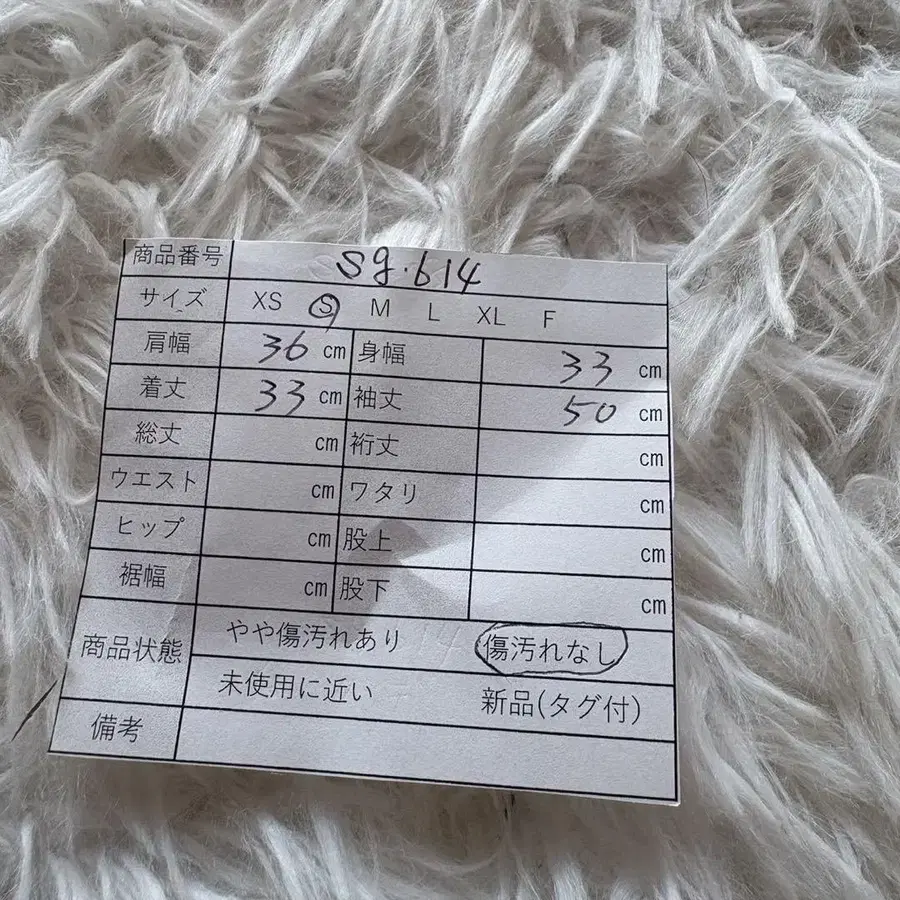 商品番号 sg.614
サイズ XS S M L XL F
肩幅 36 cm 身幅 33 cm
着丈 33 cm 袖丈 50 cm
総丈 cm 裄丈 cm
ウエスト cm ワタリ cm
ヒップ cm 股上 cm
裾幅 cm 股下 cm
商品状態 やや傷汚れあり 傷汚れなし
未使用に近い 新品(タグ付)
備考